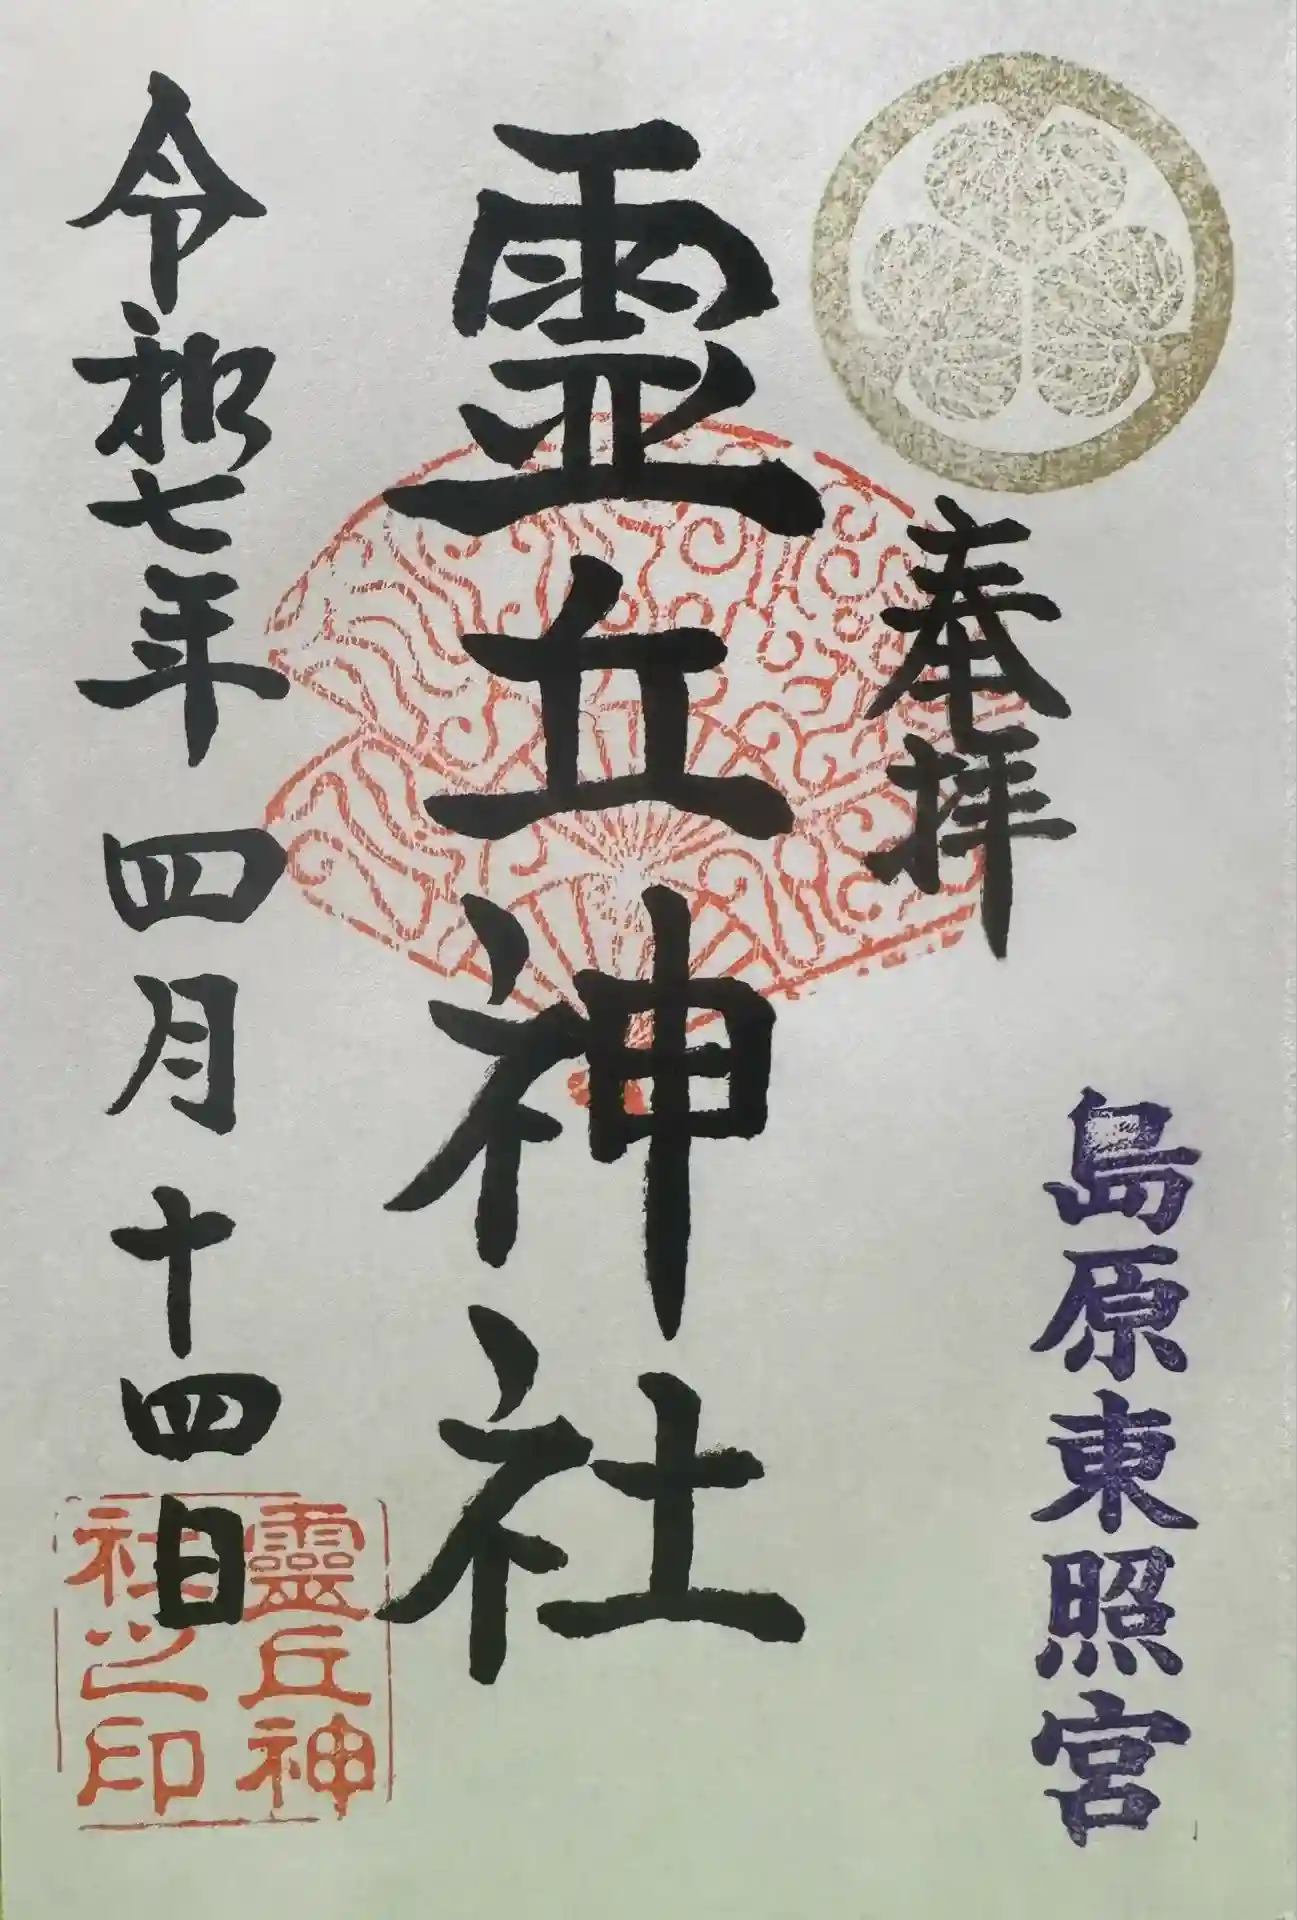 奉拝
島原東照宮
霊丘神社
令和七年四月十四日
靈丘神
社之印